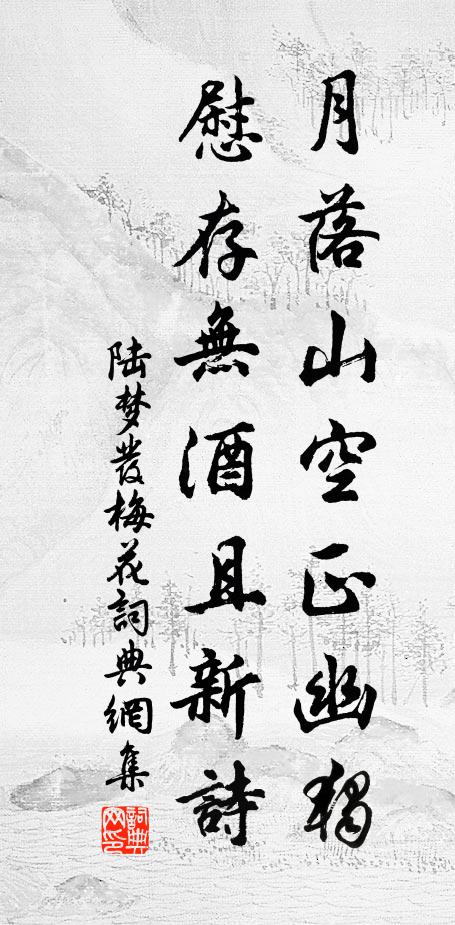 月落山空正幽獨
慰存無酒且新詩
陆梦发梅花詞典網集
詞典
网印